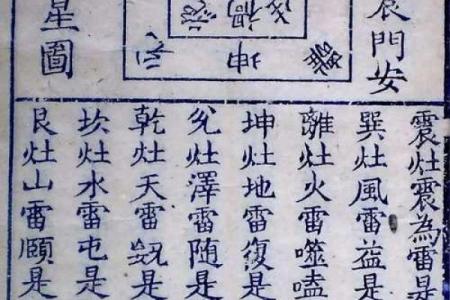 門安
坤
星圖
震灶震為雷是
巽灶風雷益是
離灶火雷噬嗑
坤灶地雷復是
兊灶澤雷随是
乾灶天雷是
坎灶水雷屯是
艮灶山雷頤是